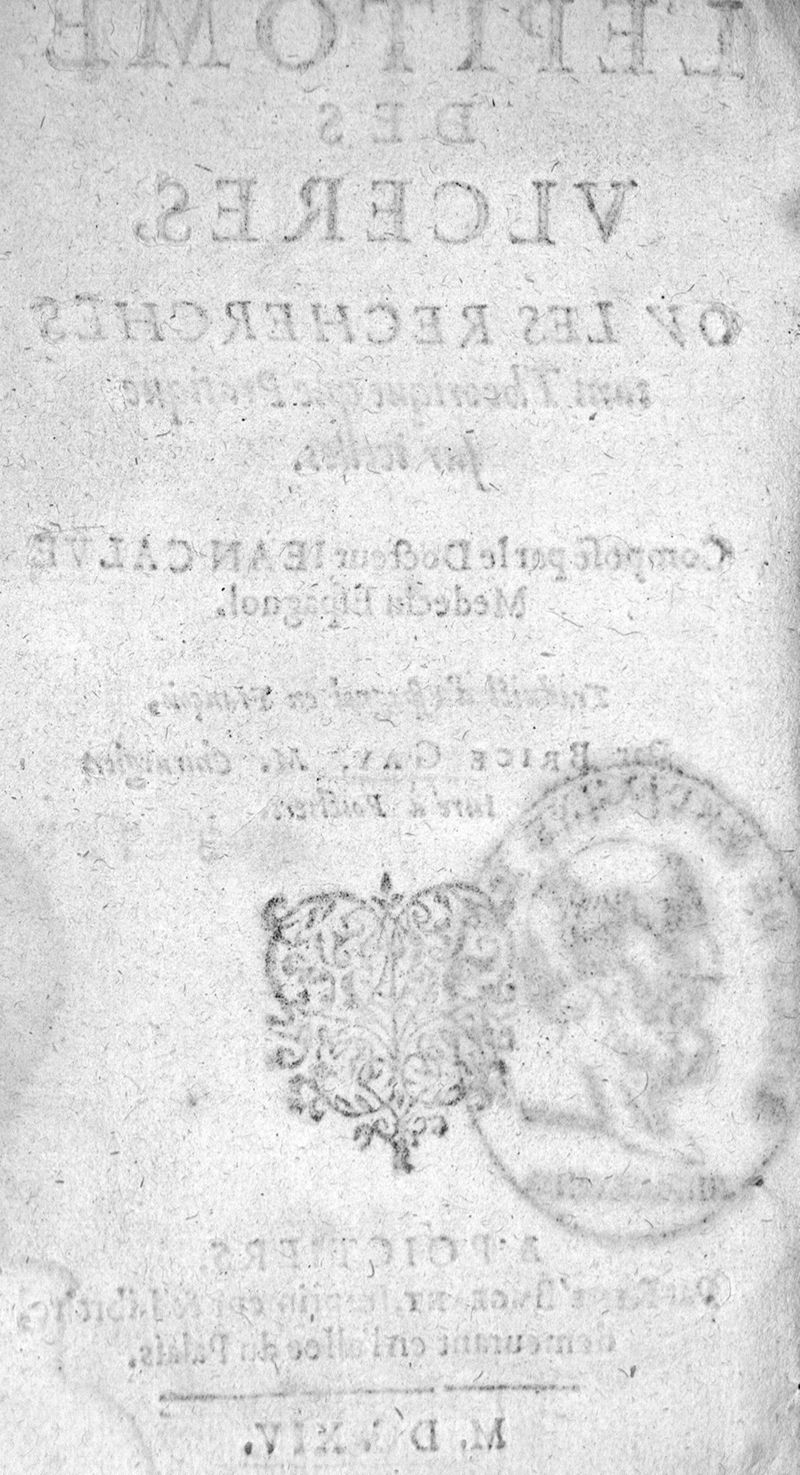 L'EPITOME
DES
VLCERES,
OV LES RECHERCHES
tant Theorique que Pratique
sur icelles.
Composé par le Docteur IEAN CALVE
Medecin Espagnol.
Traduict d'Espagnol en François,
Par BRICE GAY, M. Chirurgien
Iuré à Poictiers.
A POICTIERS,
Par
demeurant en l'allee du Palais.
M. DC. XIV.